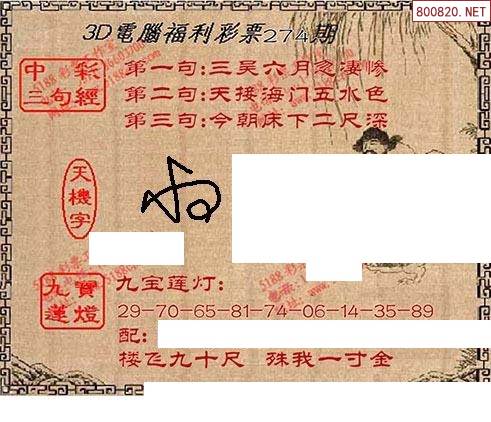 800820.NET
3D電腦福利彩票274期
中彩
三句經
第一句:三吴六月忽凄惨
第二句:天接海门五水色
第三句:今朝床下二尺深
天機字
九寶
蓮燈
九宝莲灯:
29-70-65-81-74-06-14-35-89
配:
楼飞九十尺 殊我一寸金